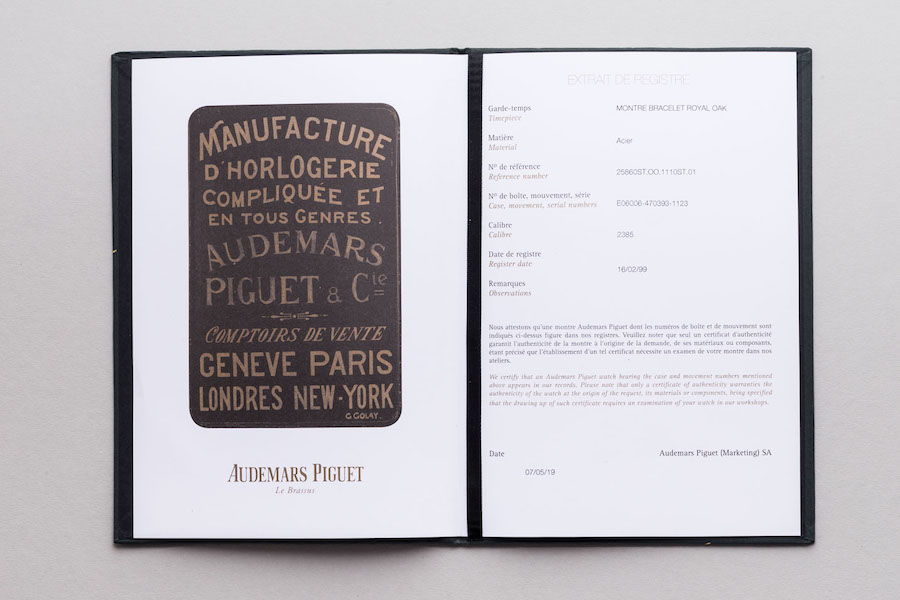 MANUFACTURE
D'HORLOGERIE
COMPLIQUÉE ET
EN TOUS GENRES.
AUDEMARS
PIGUET & Cie
COMPTOIRS DE VENTE
GENEVE PARIS
LONDRES NEW-YORK
G.GOLAY.
AUDEMARS PIGUET
Le Brassus
EXTRAIT DE REGISTRE
Garde-temps MONTRE BRACELET ROYAL OAK
Timepiece
Matière Acier
Material
Nº de référence 25860ST.OO.1110ST.01
Reference number
Nº de boîte, mouvement, série E06006-470393-1123
Case, movement, serial numbers
Calibre 2385
Calibre
Date de registre
Register date 16/02/99
Remarques
Observations
Nous attestons qu'une montre Audemars Piguet dont les numéros de boîte et de mouvement sont
indiqués ci-dessus figure dans nos registres. Veuillez noter que seul un certificat d'authenticité
garantit l'authenticité de la montre à l'origine de la demande, de ses matériaux ou composants,
étant précisé que l'établissement d'un tel certificat nécessite un examen de votre montre dans nos
ateliers.
We certify that an Audemars Piguet watch bearing the case and movement numbers mentioned
above appears in our records. Please note that only a certificate of authenticity warranties the
authenticity of the watch at the origin of the request, its materials or components, being specified
that the drawing up of such certificate requires an examination of your watch in our workshops.
Date Audemars Piguet (Marketing) SA
07/05/19